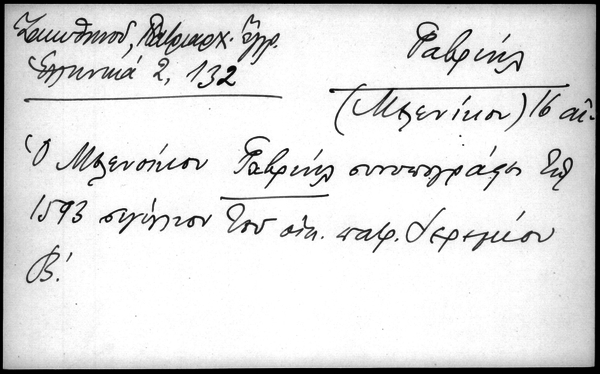 Ζακυθηνοῦ, Πατριαρχ. ἔγγρ.
Ἑλληνικά 2, 132
Γαβριήλ
(Μελενίκου) 16 αἰ.
Ὁ Μελενοίκου Γαβριήλ συνυπογράφει τῷ
1593 σιγίλλιον τοῦ οἰκ. πατρ. Ἱερεμίου
Β΄.